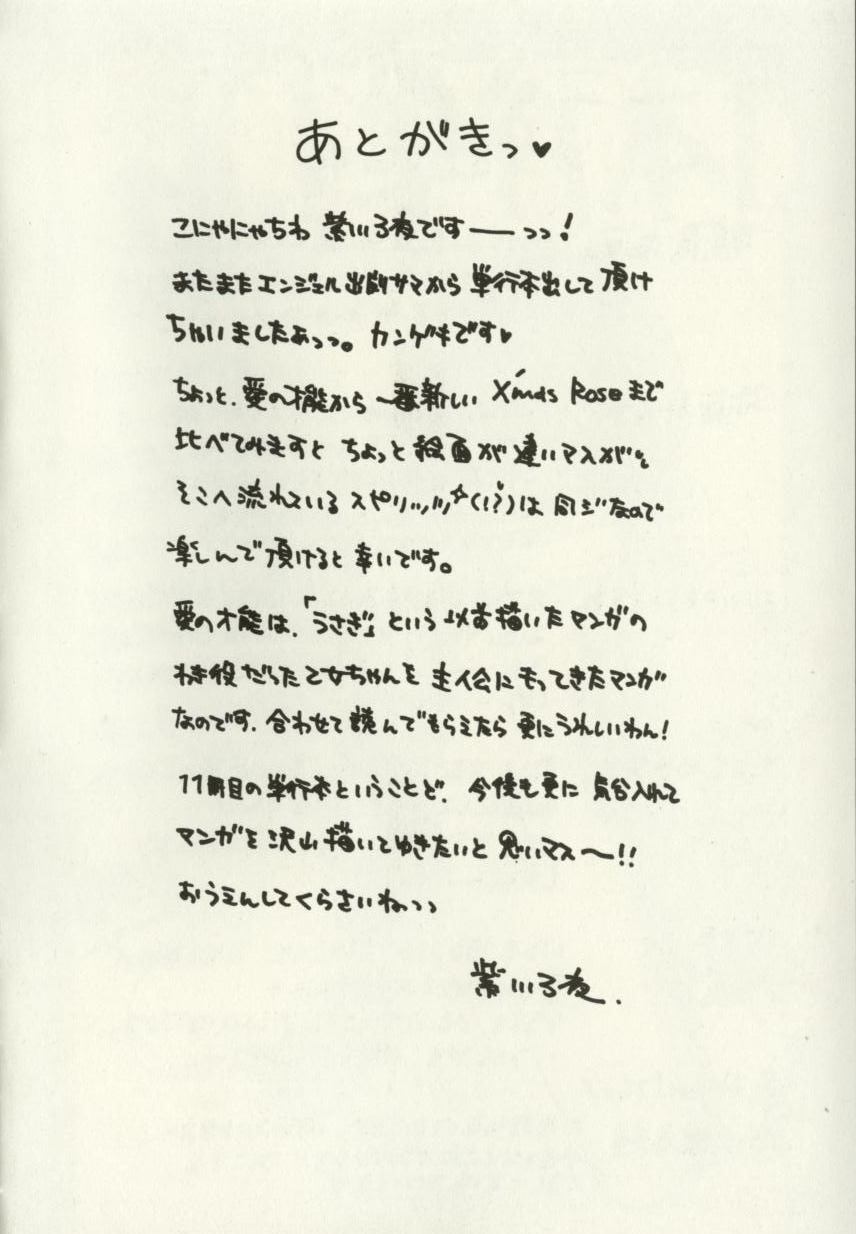 あとがきっ♥
こにゃにゃちわ 紫いろ夜ですーっっ!
またまたエンジェル出版サマから 単行本出して頂け
ちゃいましたぁっっ。カンゲキです♥
ちょっと、愛の才能から 一番新しい X'mas Roseまで
比べてみますと ちょっと絵面が違いマスが、
そこへ流れている スピリッッツ☆(!?)は 同ジなので
楽しんで頂けると 幸いです。
愛の才能は、「うさぎ」という以前描いたマンガの
わき役だった乙女ちゃんを 主人公にもってきたマンガ
なのです。合わせて読んでもらえたら 更にうれしいわん!
11冊目の単行本ということで、今後も更に 気合入れて
マンガを沢山描いてゆきたいと 思いマス〜!!
おうえんしてくらさいねっっ
紫いろ夜.